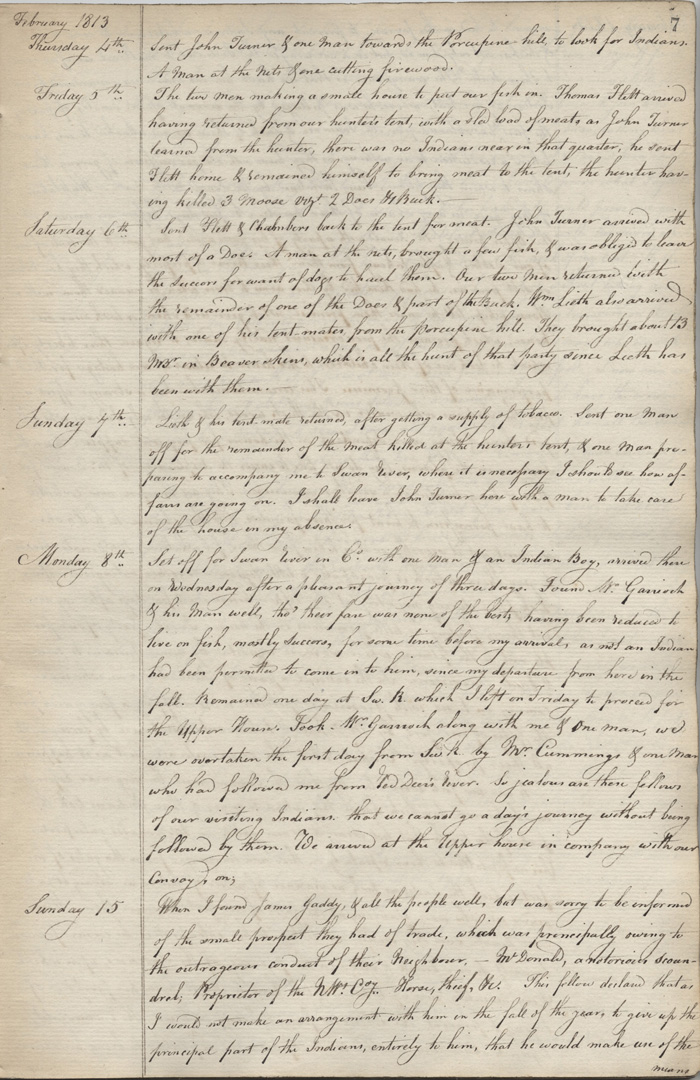 February 1813
7
Thursday 4th Sent John Turner & one Man towards the Porcupine hill, to look for Indians
A Man at the nets & one cutting firewood.
Friday 5th The two men making a small house to put our fish in. Thomas Flett arrived
having returned from our hunter's tent, with a sled load of meat as John Turner
learned from the hunter, there was no Indians near in that quarter, he sent
Flett home & remained himself to bring meat to the tent, the hunter hav-
ing killed 3 Moose vizt 2 Does & 1 Buck.—
Saturday 6th Sent Flett & Chambers back to the tent for meat. John Turner arrived with
most of a Doe. A man at the nets, brought a few fish, & was obliged to leave
the succors for want of dogs to haul them. Our two Men returned with
the remainder of one of the Does & part of the Buck. Wm Lieth also arrived
with one of his tent mates, from the porcupine hill. They brought about 13
Mbr. in Beaver skins, which is all the hunt of that party since Lieth has
been with them.—
Sunday 7th Lieth & his tent mate returned, after getting a supply of tobacco. Sent one Man
off for the remainder of the meat killed at the hunter's tent, & one Man pre-
paring to accompany me to Swan River, where it is necessary I should see how af-
fairs are going on. I shall leave John Turner here with a man to take care
of the house in my absence.
Monday 8th Set off for Swan River in Co. with one man & an Indian Boy, arrived there
on Wednesday after a pleasant journey of three days. Found Mr. Garrioch
& his Man well, tho' their fare was none of the best, having been reduced to
live on fish, mostly succors, for some time before my arrival, as not an Indian
had been permitted to come in to him, since my departure from here in the
fall. Remained one day at Sw. R. which I left on Friday to proceed for
the Upper House. Took Mr. Garrioch along with me & one man, we
were overtaken the first day from Sw. R. by Mr. Cummings & one Man
who had followed me from Red Deer's River. So jealous are these fellows
of our visiting Indians that we cannot go a day's journey without being
followed by them. We arrived at the Upper house in company with our
Convoy's on,
Sunday 15 When I found James Gaddy, & all the people well, but was sorry to be informed
of the small prospect they had of trade, which was principally owing to
the outrageous conduct of their Neighbour,— McDonald, a notorious scoun-
drel, Proprietor of the NWt Coy. Horse, thief, &c. This fellow declared that as
I would not make an arrangement with him in the fall of the year, to give up the
principal part of the Indians, entirely to him, that he would make use of the
means